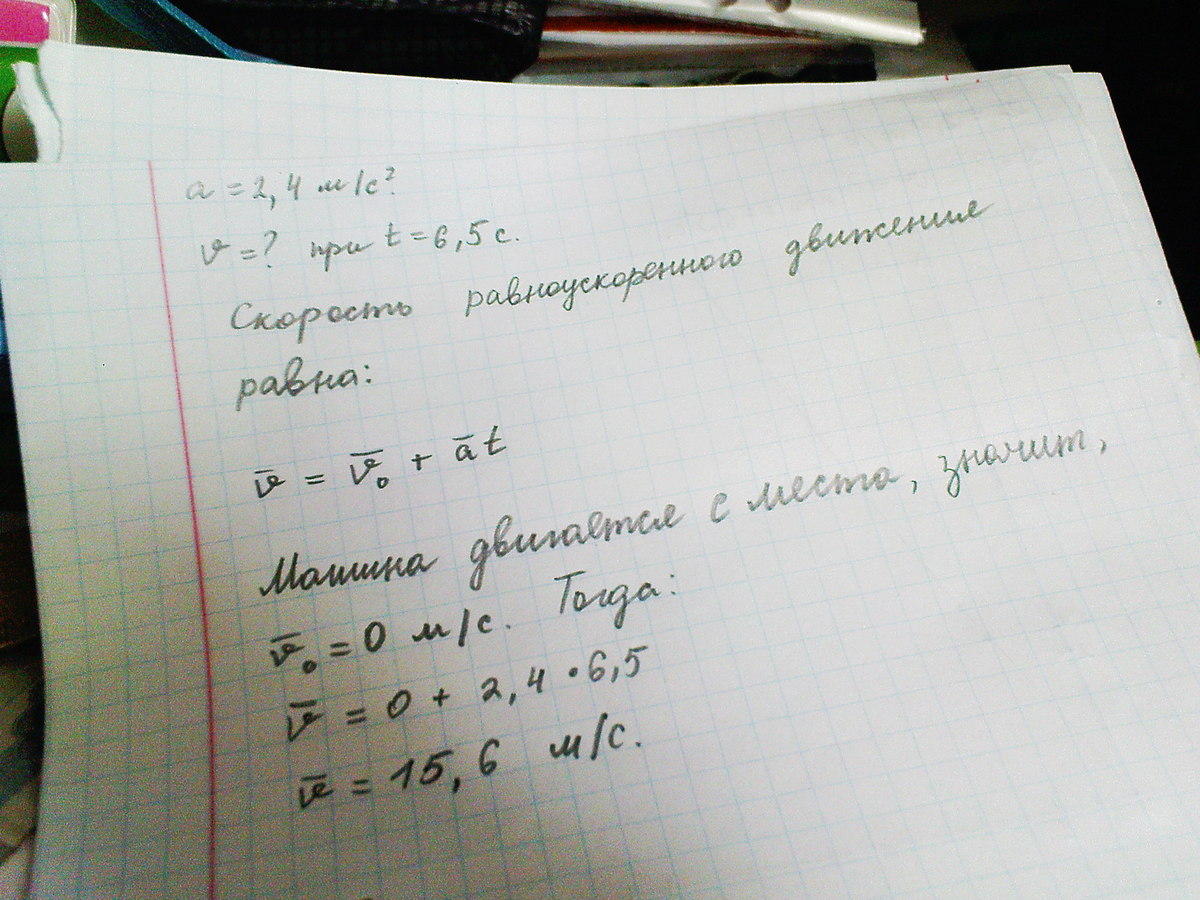 a = 2,4 м/с²
v = ? при t = 6,5 с.
Скорость равноускоренного движения
равна:
v̄ = v̄₀ + āt
Машина двигается с места, значит,
v̄₀ = 0 м/с. Тогда:
v̄ = 0 + 2,4 • 6,5
v̄ = 15,6 м/с.